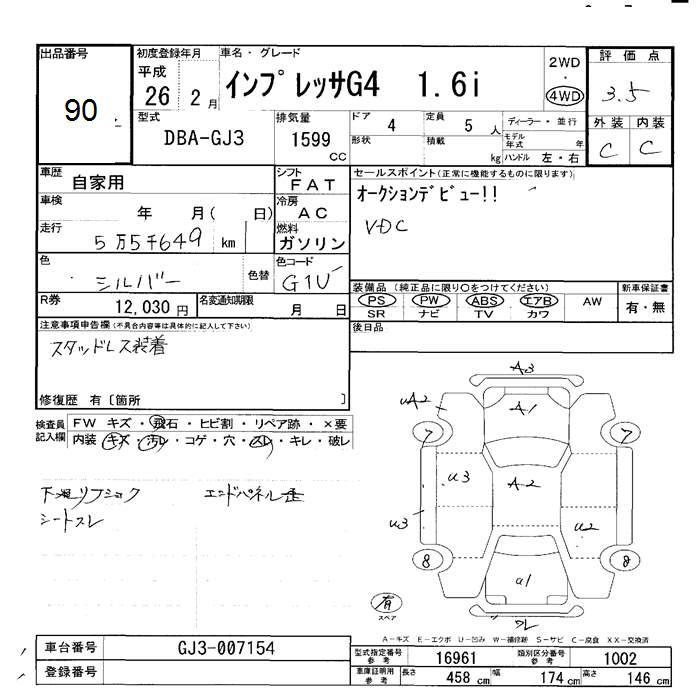 出品番号
90
初度登録年月
平成
26 2 月
車名・グレード
インプレッサG4 1.6i
2WD
・
4WD
評価点
3.5
外装 内装
C C
型式
DBA-GJ3
排気量
1599
CC
ドア
4
形状
定員
5 人
積載
kg
ディーラー・並行
モデル
年式 年
ハンドル 左・右
車歴
自家用
シフト
FAT
車検
年 月( 日)
冷房
AC
走行
5万5千649 km
燃料
ガソリン
色
シルバー
色替
色コード
G1U
R券
12,030 円
名変通知期限
月 日
セールスポイント(正常に機能するものに限ります)
オークションデビュー!!
VDC
装備品(純正品に限り○をつけてください)
PS PW ABS エアB AW
SR ナビ TV カワ
新車保証書
有・無
後日品
注意事項申告欄(不具合内容等は具体的に記入して下さい)
スタッドレス装着
修復歴 有〔箇所 〕
検査員
記入欄
FW キズ・飛石・ヒビ割・リペア跡・×要
内装 キズ・汚レ・コゲ・穴・スレ・キレ・破レ
シートスレ
エンドパネル歪
A3
UA2
A1
7
7
U3
A2
U3
U2
8
8
a1
有
スペア
A-キズ E-エクボ U-凹み W-補修跡 S-サビ C-腐食 XX-交換済
車台番号
GJ3-007154
登録番号
型式指定番号
参考
16961
類別区分番号
参考
1002
車庫証明用
参考
長さ
458 cm
幅
174 cm
高さ
146 cm